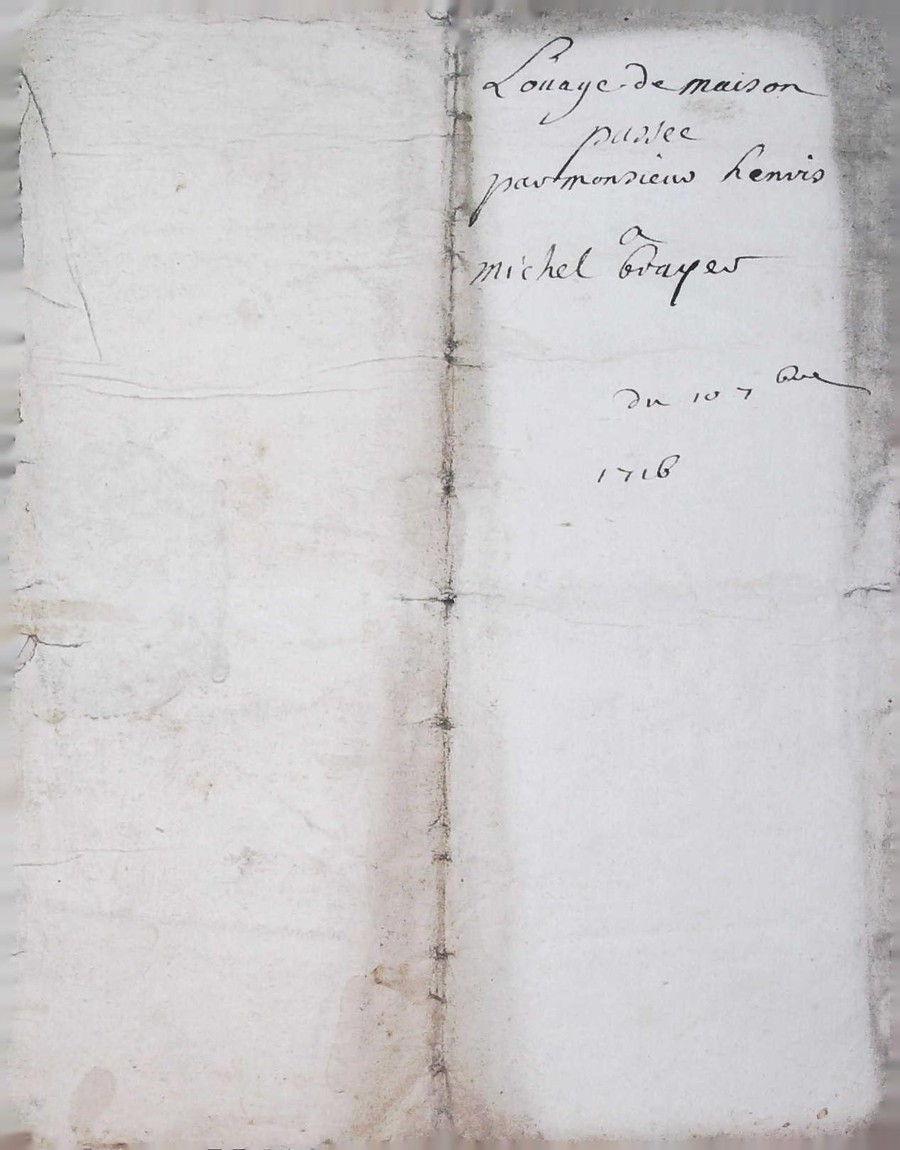 Loüage de maison
passée
par monsieur henris
a
michel brayer
du 10 7 bre
1716